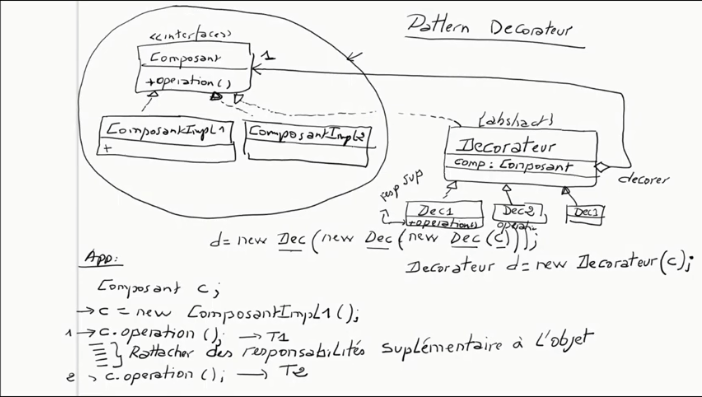 Pattern Decorateur
<<interface>>
Composant
1
+operation()
ComposantImpl1
+
ComposantImpl2
{abstract}
Decorateur
comp : Composant
decorer
resp sup
Dec1
+operation()
Dec2
operati
Dec3
d = new Dec(new Dec(new Dec(c)));
Decorateur d = new Decorateur(c);
App:
Composant c;
→ c = new ComposantImpl1();
1 → c.operation(); → T1
Rattacher des responsabilités suplémentaire à l'objet
2 → c.operation(); → T2